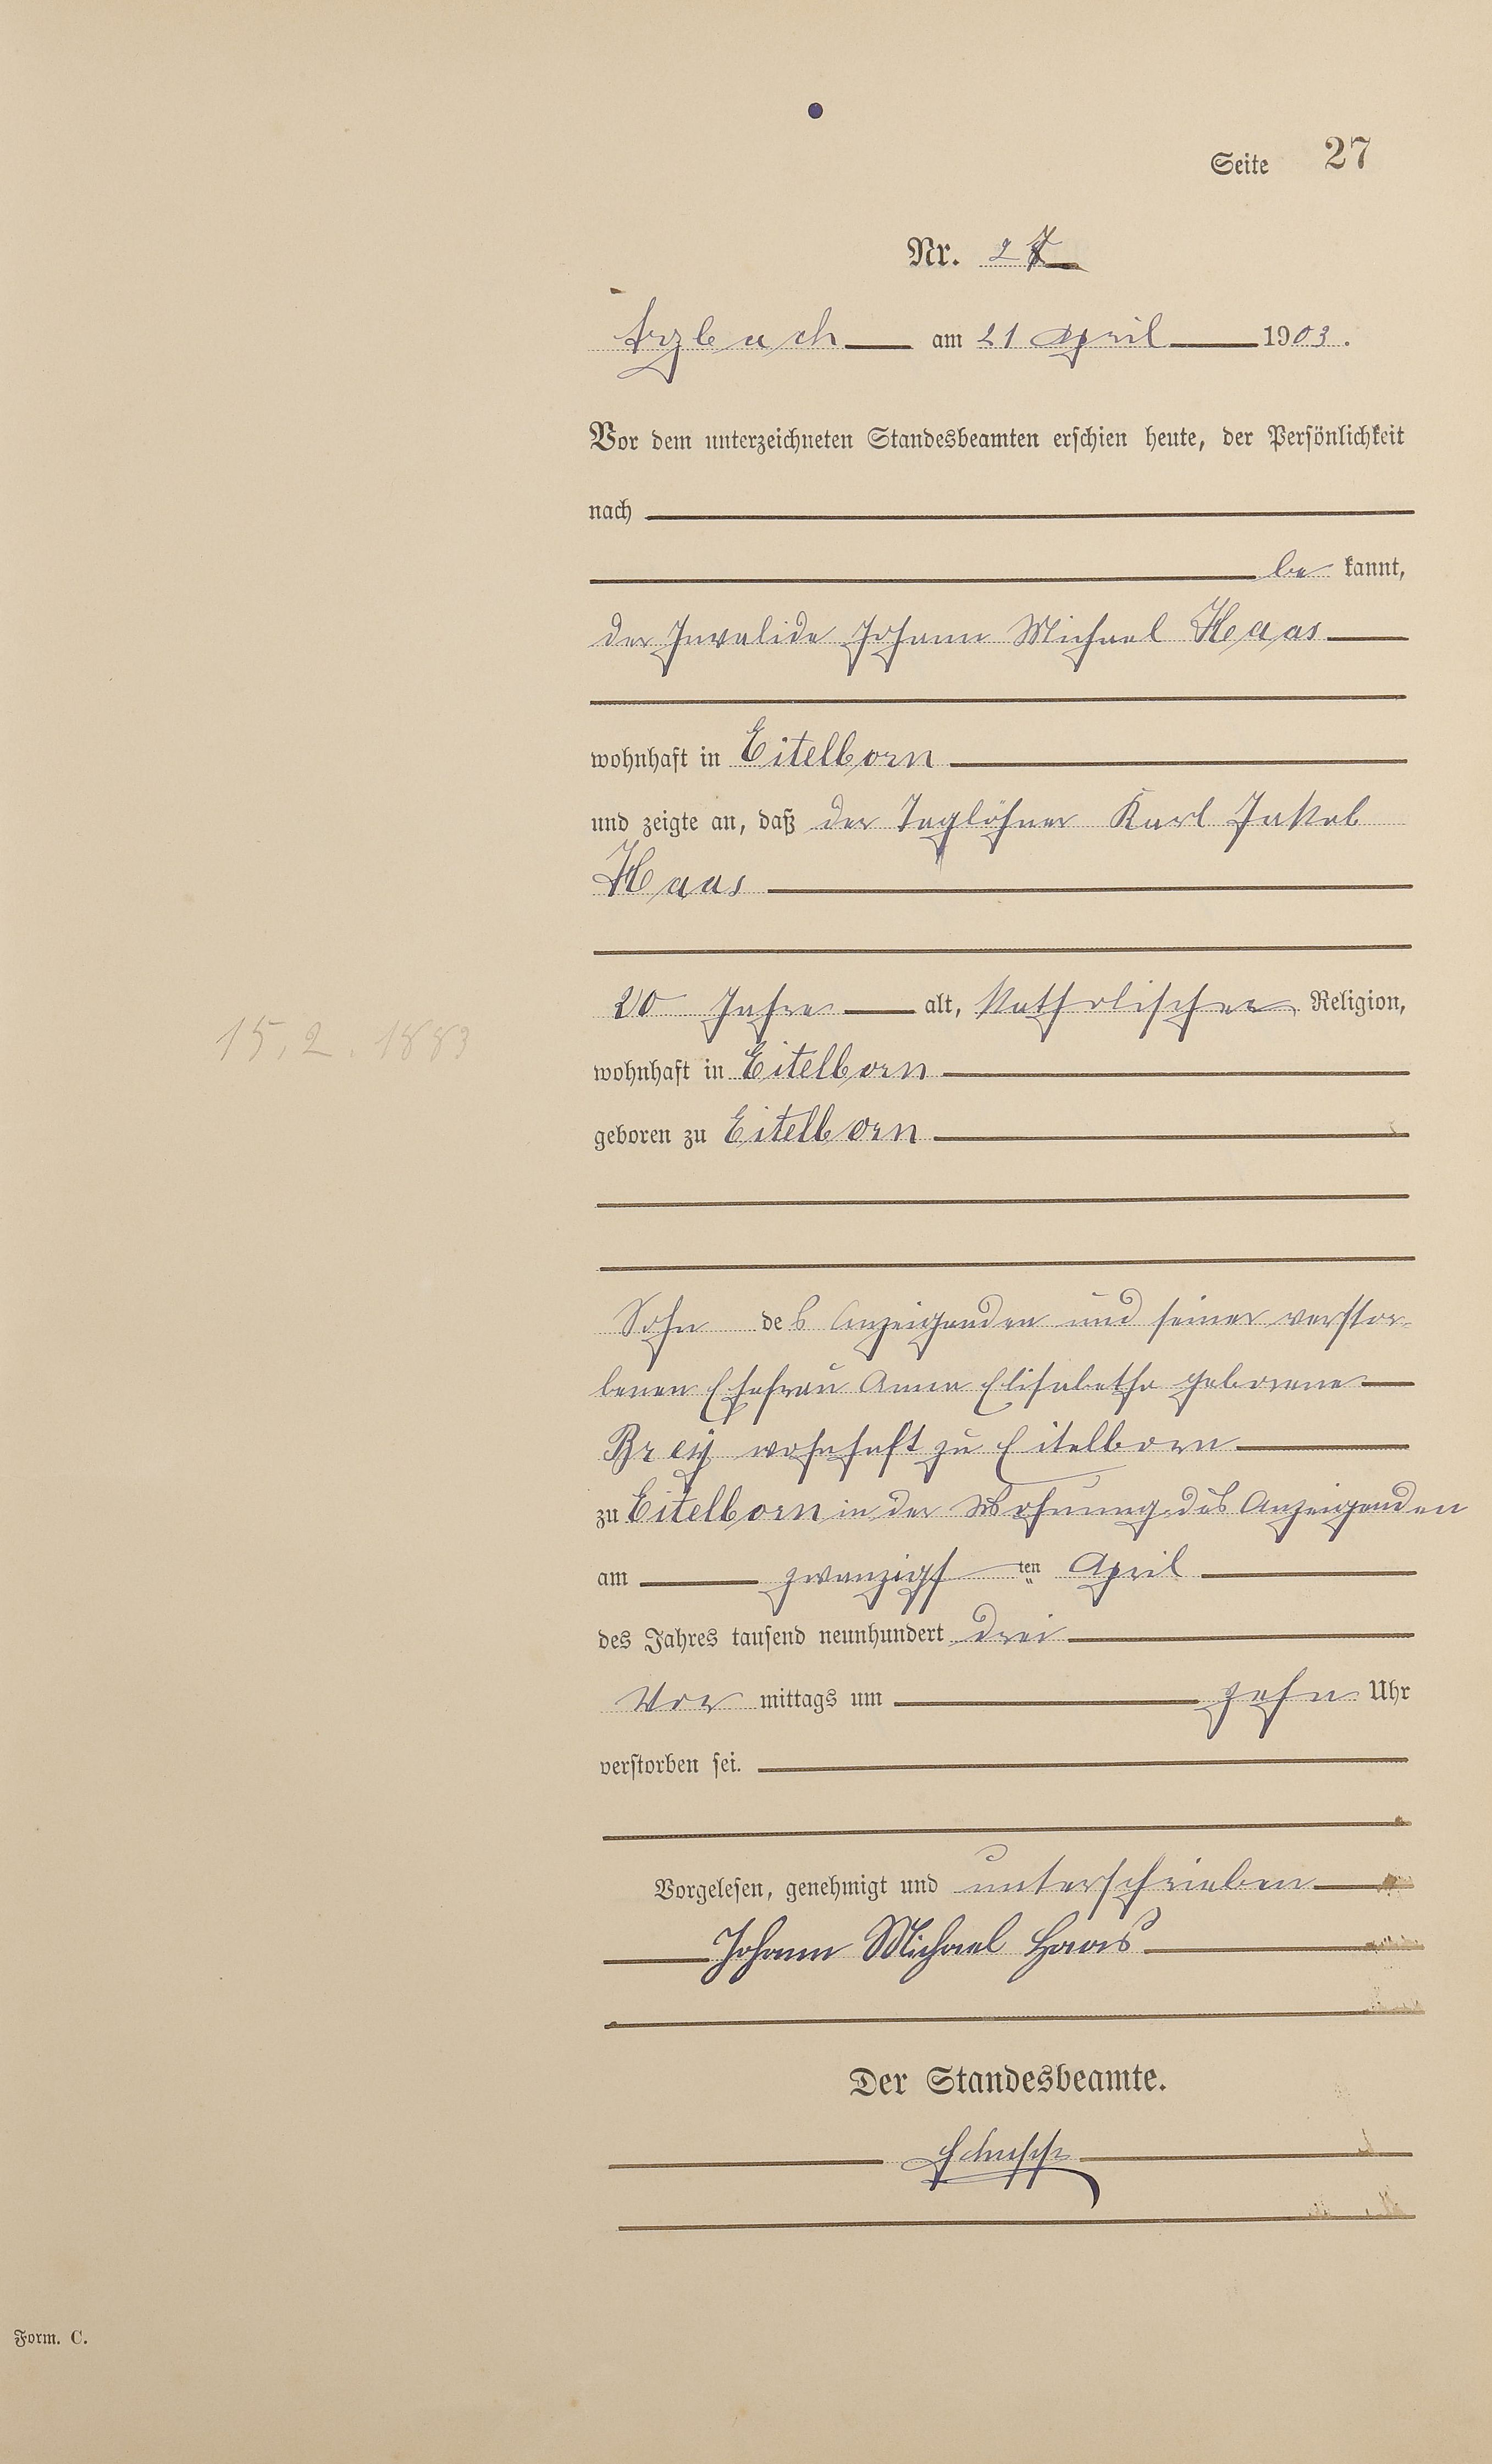 Seite 27
Nr. 27
Arzbach am 21 April 1903.
Vor dem unterzeichneten Standesbeamten erschien heute, der Persönlichkeit
nach
be kannt,
der Invalide Johann Michael Haas
wohnhaft in Eitelborn
und zeigte an, daß der Taglöhner Karl Jakob
Haas
20 Jahre alt, katholischer Religion,
15.2.1883
wohnhaft in Eitelborn
geboren zu Eitelborn
Sohn des Anzeigenden und seiner verstor-
benen Ehefrau Anna Elisabetha geborene
Breÿ wohnhaft zu Eitelborn
zu Eitelborn in der Wohnung des Anzeigenden
am zwanzigsten April
des Jahres tausend neunhundert drei
Vor mittags um zehn Uhr
verstorben sei.
Vorgelesen, genehmigt und unterschrieben
Johann Michael Haas
Der Standesbeamte.
Form. C.